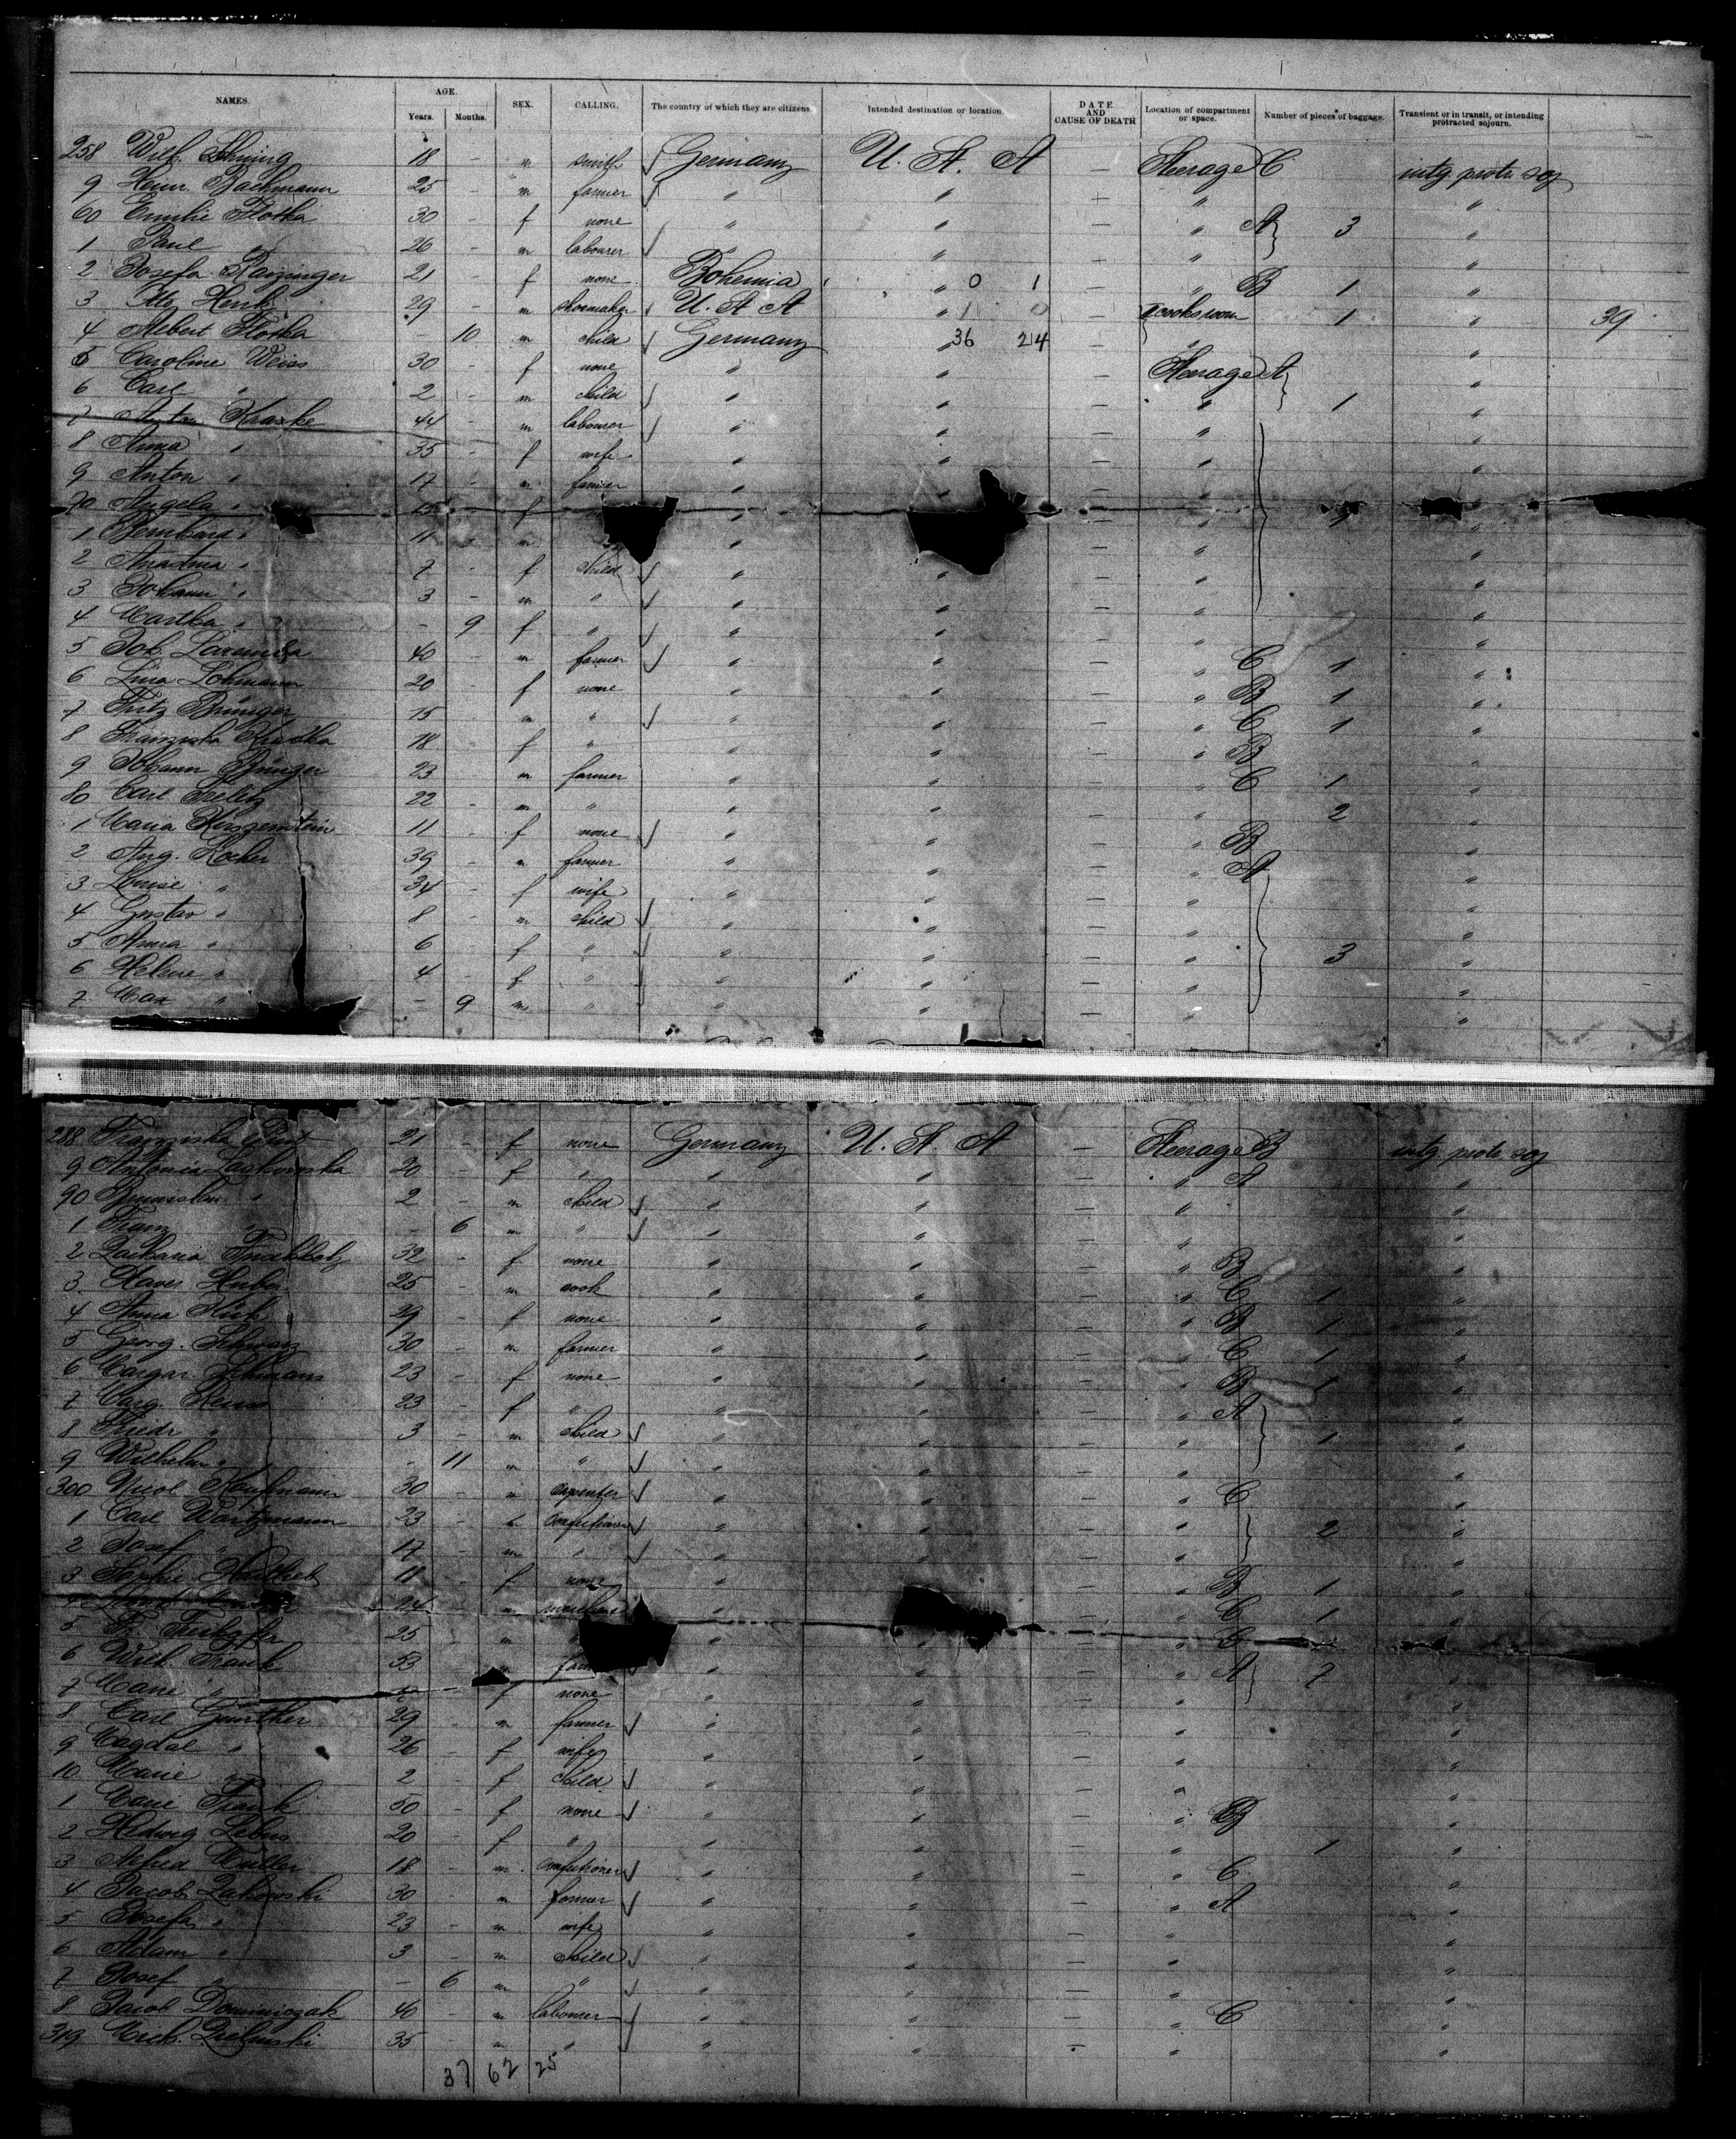 NAMES. AGE. Years. Months. SEX. CALLING. The country of which they are citizens. Intended destination or location. DATE AND CAUSE OF DEATH Location of compartment or space. Number of pieces of baggage. Transient or in transit, or intending protracted sojourn.
258 Wilh. 18 - m smith Germany U. S. A — Steerage C intg protr soj
9 Heinr. Bachmann 25 - m farmer " " — " "
60 Emilie Flotka 30 - f none " " — " A 3 "
1 Paul " 26 - m labourer " " — " "
2 Josefa 21 - f none Bohemia " 0 1 — " B 1 "
3 Otto 29 - m shoemaker U. S. A " 1 0 — cooks room 1 " 39
4 Albert Flotka - 10 m child Germany " 36 24 — " "
5 Caroline Weiss 30 - f none " " — Steerage A "
6 Carl " 2 - m child " " — " 1 "
7 Anton Kraske 44 - m labourer " " — " "
8 Anna " 35 - f wife " " — " "
9 Anton " 17 - m farmer " " — " "
70 Angela " 15 - f " — " "
1 Bernhard " 11 - m " — " "
2 " 7 - f child " " — " "
3 Johann " 3 - m " " " — " "
4 Martha " - 9 f " " " — " "
5 Joh. 40 - m farmer " " — " C 1 "
6 Lina Lohmann 20 - f none " " — " B 1 "
7 Fritz 15 - m " " " — " C 1 "
8 Franziska 18 - f " " " — " B "
9 Johann 23 - m farmer " " — " C 1 "
80 Carl 22 - m " " " — " 2 "
1 Maria 11 - f none " " — " B "
2 Aug. Kocher 39 - m farmer " " — " A "
3 Louise " 34 - f wife " " — " "
4 Gustav " 8 - m child " " — " "
5 Anna " 6 - f " " " — " 3 "
6 Helene " 4 - f " " " — " "
7 Max " - 9 m " " " — " "
288 Franziska 21 - f none Germany U. S. A — Steerage B intg protr soj
9 Antonia Laskowska 20 - f " " " — " A "
90 " 2 - m child " " — " "
1 Franz " - 6 m " " " — " "
2 Zacharia 32 - f none " " — " B "
3 Xaver Huber 25 - m cook " " — " C 1 "
4 Anna 29 - f none " " — " B 1 "
5 Georg Schwarz 30 - m farmer " " — " C 1 "
6 Margar. 23 - f none " " — " B 1 "
7 Marg. 23 - f " " " — " A "
8 Friedr " 3 - m child " " — " 1 "
9 Wilhelm " - 11 m " " " — " "
300 Nicol Kaufmann 30 - m carpenter " " — " C "
1 Carl 23 - m Confectioner " " — " 2 "
2 Josef " 17 - m " " " — " "
3 Sophie 18 - f none " " — " B 1 "
24 - m merchant " — " C 1 "
5 Fr. 25 - m " " — " C "
6 Wilh. Frank 53 " " — " A 2 "
7 Marie " - f none " " — " "
8 Carl Günther 29 - m farmer " " — " "
9 Magdal " 26 - f wife " " — " "
10 Marie " 2 - f child " " — " "
1 Marie Frank 50 - f none " " — " "
2 Hedwig 20 - f " " " — " 1 "
3 Alfred Müller 18 - m Confectioner " " — " C "
4 Jacob Zakowski 30 - m farmer " " — " A "
5 Josefa " 23 - m wife " " — " "
6 Adam " 3 - m child " " — " "
7 Josef " - 6 m " " " — " "
8 Jacob Dominiczak 40 - m labourer " " — " C "
319 Mich. Zielinski 35 - m " " " — " "
37 62 25